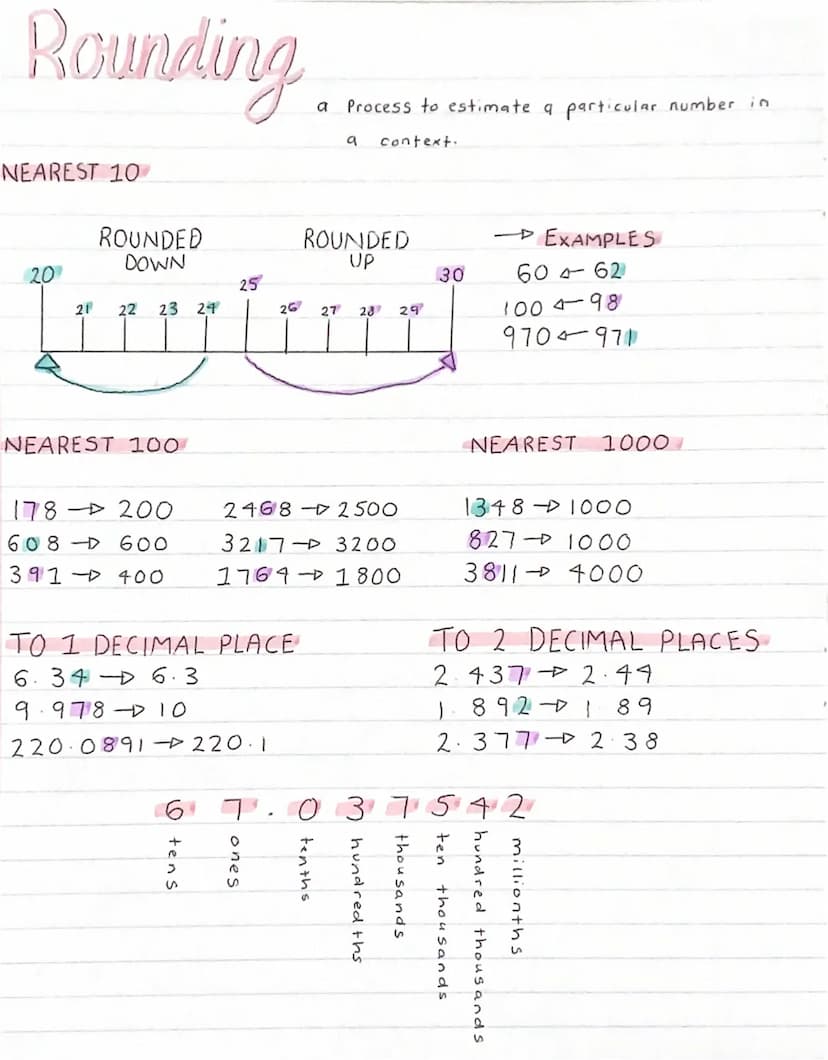 Rounding
a Process to estimate a particular number in
a context.
NEAREST 10
ROUNDED DOWN
ROUNDED UP
20 21 22 23 24 25 26 27 28 29 30
→ EXAMPLES
60 ← 62
100 ← 98
970 ← 971
NEAREST 100
178 → 200
608 → 600
391 → 400
2468 → 2500
3217 → 3200
1764 → 1800
NEAREST 1000
1348 → 1000
827 → 1000
3811 → 4000
TO 1 DECIMAL PLACE
6.34 → 6.3
9.978 → 10
220.0891 → 220.1
TO 2 DECIMAL PLACES
2.437 → 2.44
1.892 → 1 89
2.377 → 2.38
6 7 . 0 3 7 5 4 2
tens
ones
tenths
hundredths
thousands
ten thousands
hundred thousands
millionths